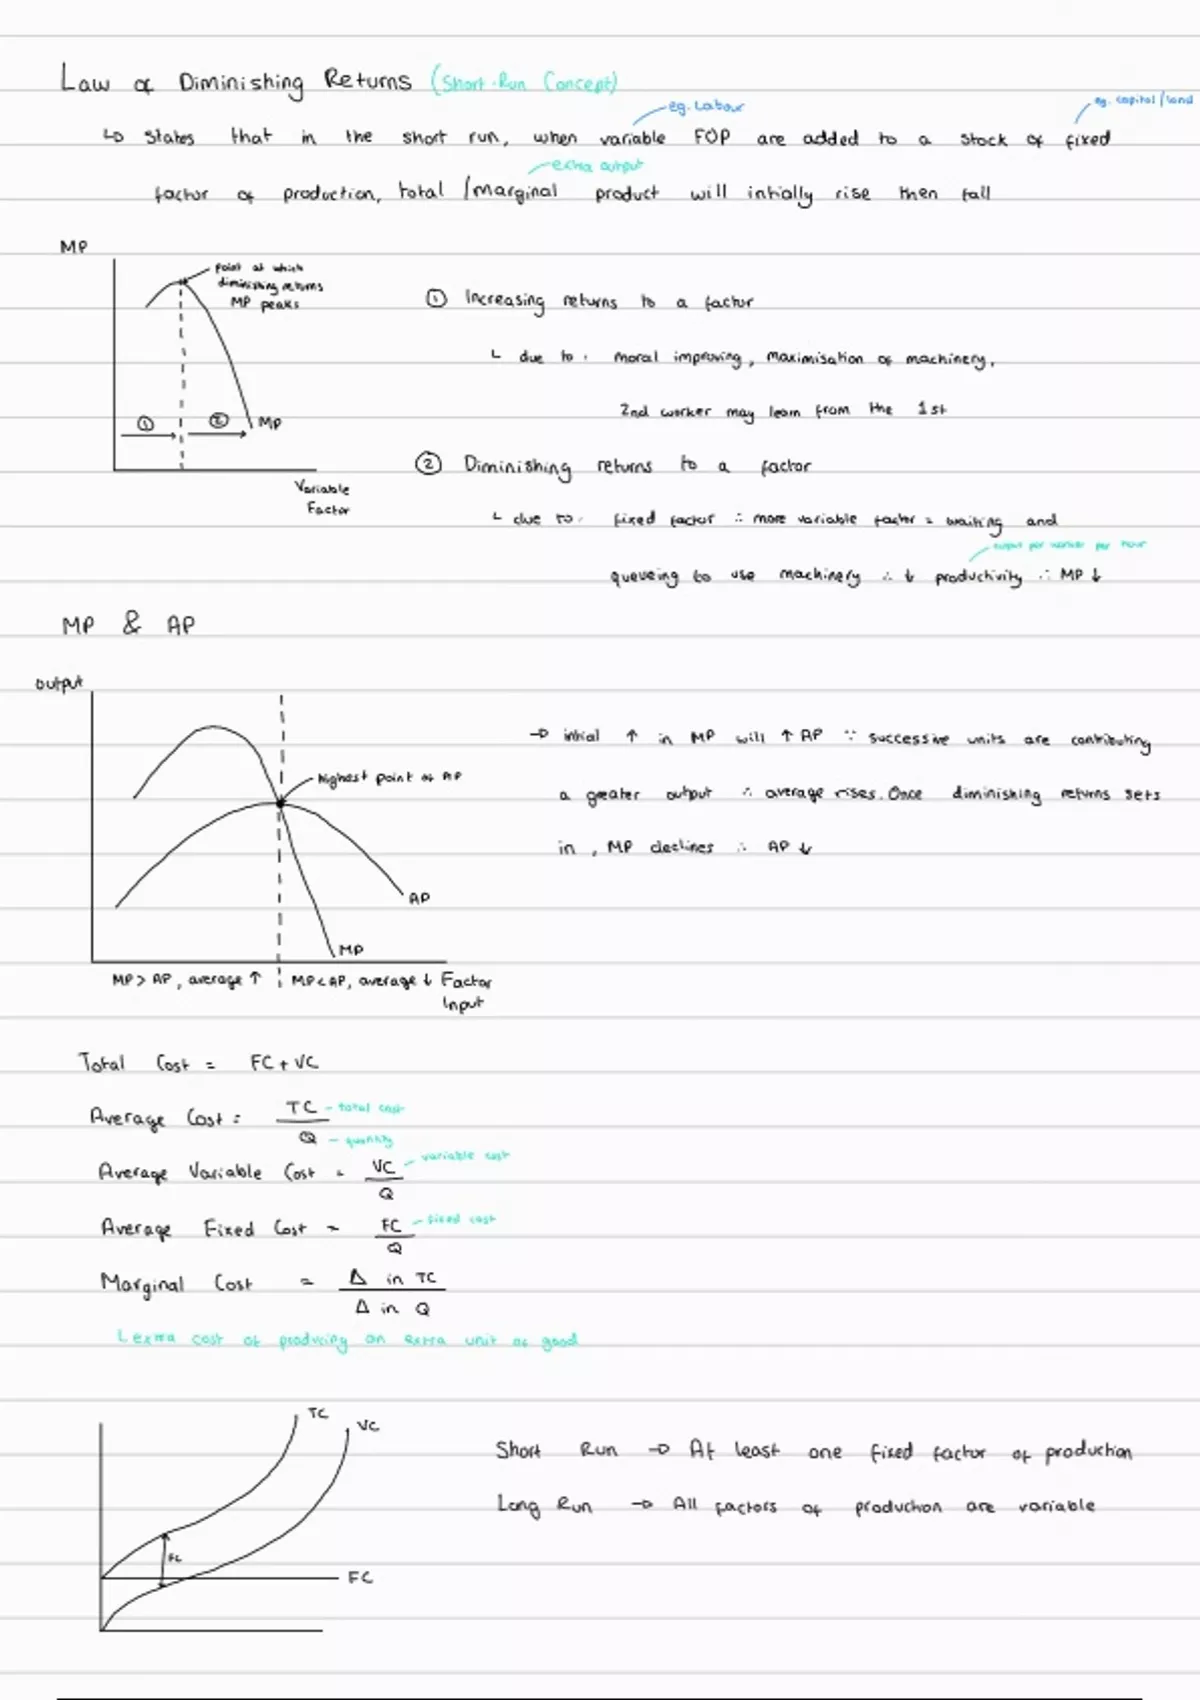 Law of Diminishing Returns (Short-Run Concept)
eg. Labour
eg. capital/land
↳ States that in the short run, when variable FOP are added to a stock of fixed
extra output
factor of production, total /marginal product will intially rise then fall
MP
point at which
diminishing returns
MP peaks
① ②
MP
Variable
Factor
① Increasing returns to a factor
↳ due to: moral improving, maximisation of machinery,
2nd worker may learn from the 1st
② Diminishing returns to a factor
↳ due to: fixed factor ∴ more variable factor = waiting and
output per worker per hour
queueing to use machinery ∴ ↓ productivity ∴ MP ↓
MP & AP
Output
highest point of AP
AP
MP
MP > AP, average ↑ MP < AP, average ↓ Factor
Input
→ intial ↑ in MP will ↑ AP ∵ successive units are contributing
a greater output ∴ average rises. Once diminishing returns sets
in, MP declines ∴ AP ↓
Total Cost = FC + VC
Average Cost = TC - total cost
Q - quantity
Average Variable Cost = VC - variable cost
Q
Average Fixed Cost = FC - fixed cost
Q
Marginal Cost = Δ in TC
Δ in Q
↳ extra cost of producing an extra unit of good
TC
VC
FC
FC
Short Run → At least one fixed factor of production
Long Run → All factors of production are variable